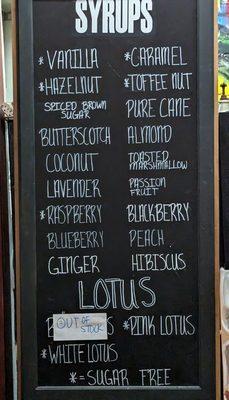 SYRUPS
*VANILLA *CARAMEL
*HAZELNUT *TOFFEE NUT
SPICED BROWN SUGAR PURE CANE
BUTTERSCOTCH ALMOND
COCONUT TOASTED MARSHMALLOW
LAVENDER PASSION FRUIT
*RASPBERRY BLACKBERRY
BLUEBERRY PEACH
GINGER HIBISCUS
LOTUS
OUT OF STOCK *PINK LOTUS
*WHITE LOTUS
*= SUGAR FREE